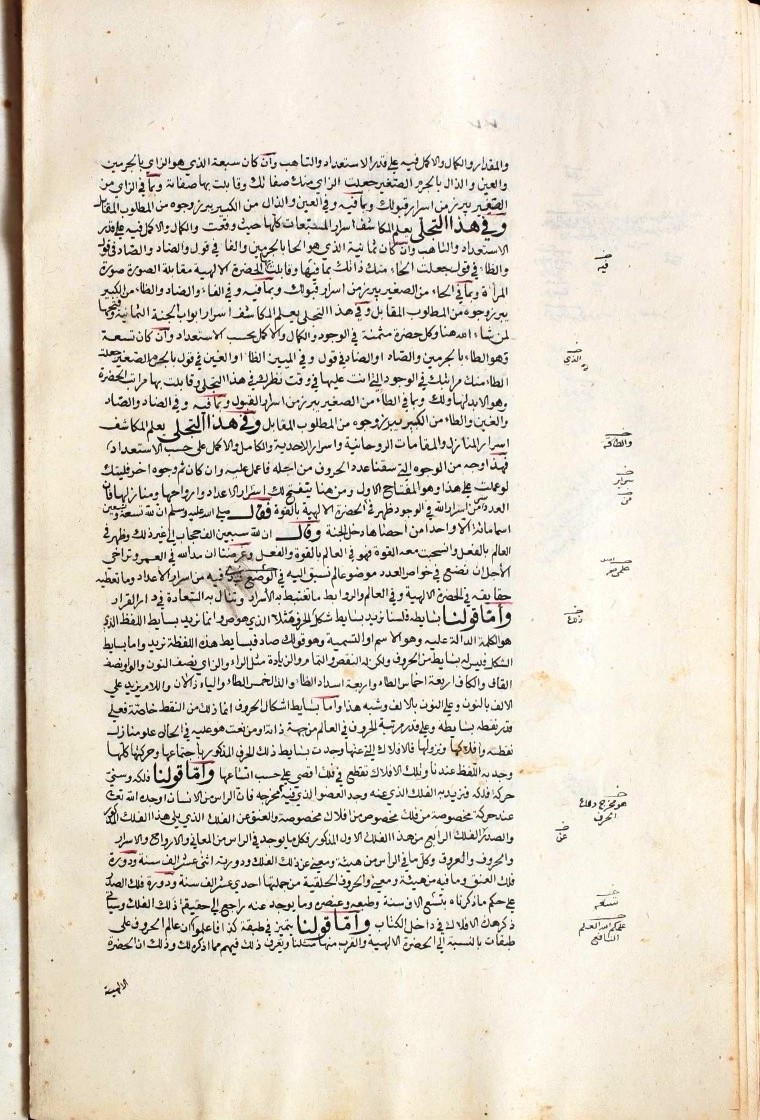 والمقدار والكمال والاكمل فيه على قدر الاستعداد والتاهب وان كان سبعة الذي هو الزاي بالجزمين
والعين والذال بالجزم الصغير جعلت الزاي منك صفاتك وقابلت بها صفاته وبما في الزاي من
الصغير يبرز من اسرار قبولك وبما فيه وفي العين والذال من الكبير يبرز وجوه من المطلوب المقابل
وفي هذا التجلى يعلم المكاشف اسرار المسبعات كلها حيث وقعت والكمال والاكمل فيه على قدر
الاستعداد والتاهب وان كان ثمانية الذي هو الحا بالجزمين والفا في قول والضاد والصاد في قول
والظاء في قول جعلت الحاء منك ذاتك بما فيها وقابلت الحضرة الالهية مقابلة الصورة صورة
المرآة وبما في الحاء من الصغير يبرز من اسرار قبولك وبما فيه وفي الفاء والضاد والظاء من الكبير
يبرز وجوه من المطلوب المقابل وفي هذا التجلى يعلم المكاشف اسرار ابواب الجنة الثمانية وفتحها
لمن شاء الله هنا وكل حضرة مثمنة في الوجود والكمال والاكمل بحسب الاستعداد وان كان تسعة
فهو الطاء بالجزمين والضاد او الصاد في قول وفي الميين الظا او الغين في قول بالجزم الصغير جعلت
الطاء منك مراتبك في الوجود التي انت عليها في وقت نظرك في هذا التجلى وقابلت بها مراتب الحضرة
وهو الابد لها ولك وبما في الطاء من الصغير يبرز من اسرار القبول وبما فيه وفي الضاد والصاد
والغين والظاء من الكبير يبرز وجوه من المطلوب المقابل وفي هذا التجلى يعلم المكاشف
اسرار المنازل والمقامات الروحانية واسرار الاحدية والكامل والاكمل على حسب الاستعداد
فهذا وجه من الوجوه التي سقنا عدد الحروف من اجله فاعمل عليه وان كان ثم وجوه اخر فليتك
لو عملت على هذا وهو المفتاح الاول ومن هنا ينفتح لك اسرار الاعداد وارواحها ومنازلها فان
العدد سر من اسرار الله في الوجود ظهر في الحضرة الالهية بالقوة فقال صلى الله عليه وسلم ان لله تسعة وتسعين
اسما مائة الا واحدا من احصاها دخل الجنة وقال ان لله سبعين الف حجاب الى غير ذلك وظهر في
العالم بالفعل وانسحبت معه القوة فهو في العالم بالقوة والفعل وغرضنا ان مد الله في العمر وتراخي
الاجل ان نضع في خواص العدد موضوعا لم نسبق اليه في فيه من اسرار الاعداد وما تعطيه
حقايقه في الحضرة الالهية وفي العالم والروابط ما تغتبط به الاسرار وتنال به السعادة في دار القرار
وأما قولنا بسايطه فلسنا نريد بسايط شكل الحرف مثلا الذي هو ص وانما نريد بسايط اللفظ الذي
هو الكلمة الدالة عليه وهو الاسم او التسمية وهو قولك صاد فبسايط هذه اللفظة نريد واما بسايط
الشكل فليس له بسايط من الحروف ولكن له النقص والتمام والزيادة مثل الراء والزاي نصف النون والواو نصف
القاف والكاف اربعة اخماس الطاء واربعة اسداس الظاء والدال خمس الطاء والياء ذالان واللام يزيد على
الالف بالنون وعلى النون بالالف وشبه هذا واما بسايط اشكال الحروف انما ذلك من النقط خاصة فعلى
قدر نقطه بسايطه وعلى قدر مرتبة الحرف في العالم من جهة ذاته او من نعت هو عليه في الحال علو منازل
نقطه وافلاكها ونزولها فالافلاك التي عنها وجدت بسايط ذلك الحرف المذكور باجتماعها وحركتها كلها
وجد به اللفظ عندنا وتلك الافلاك تقطع في فلك اقصى على حسب اتساعها وأما قولنا فلكه وسني
حركة فلكه فنريد به الفلك الذي عنه وجد العضو الذي فيه مخرجه فان الراس من الانسان اوجده الله تع
عند حركة مخصوصة من فلك مخصوص من افلاك مخصوصة والعنق عن الفلك الذي يلي هذا الفلك المذكور
والصدر الفلك الرابع من هذا الفلك الاول المذكور فكل ما يوجد في الراس من المعاني والارواح والاسرار
والحروف والعروف وكل ما في الراس من هيئة ومعنى عن ذلك الفلك ودورته اثنى عشر الف سنة ودورة
فلك العنق وما فيه من هيئة ومعنى والحروف الحلقية من جملتها احدى عشر الف سنة ودورة فلك الصدر
على حكم ما ذكرناه تسع الاف سنة وطبعه وعنصره وما يوجد عنه راجع الى حقيقة ذلك الفلك وسياتي
ذكر هذه الافلاك في داخل الكتاب وأما قولنا يتميز في طبقة كذا فاعلموا ان عالم الحروف على
طبقات بالنسبة الى الحضرة الالهية والقرب منها مثلنا وتعرف ذلك فيهم مما اذكره لك وذلك ان الحضرة
الالهية
فيه
والطاقه
ذلك
هو مخرج ذلك
الحرف
عن